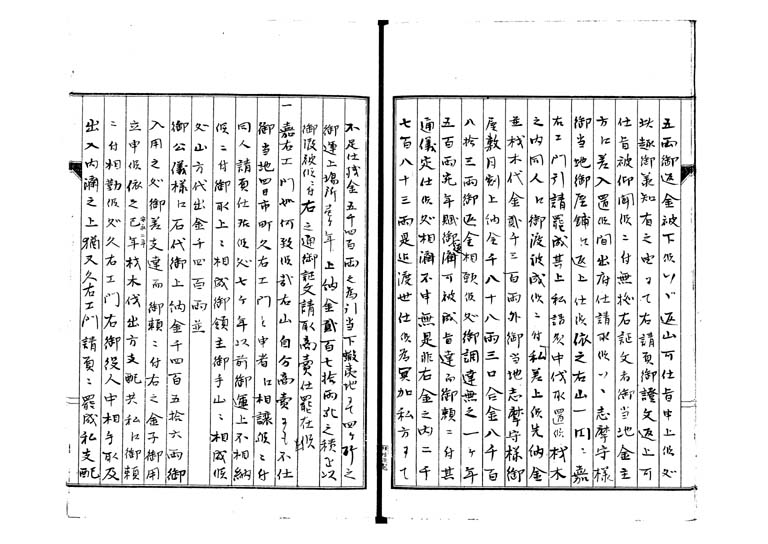 五両御返金被下候ハヽ返山可仕旨申上候処
此趣御承知有之由ニて右請負御證文返上可
仕旨被仰聞候ニ付無拠右証文者御当地金主
方江差入置候間出府仕請求候ハヽ志摩守様
御当地御屋鋪江返上仕候依之右山一円ニ嘉
右エ門引請罷成其上私請負中伐木置候材木
之内同人江御渡被成候ニ付私差上候先納金
並材木代金弐千三百両外御当地志摩守様御
屋敷月割上納金千八十八両三口合金八千百
八拾三両御返金相願候処御調達無之一ヶ年
五百両充年賦御返済可被成旨達而御願ニ付其
通儀定仕候処相済不申無是非右金之内二千
七百八十三両是迄渡世仕候為冥加私方ニて
不足仕残金五千四百両之為引当下蝦夷地ニて四ヶ所之
御運上場所壱ヶ年上金弐百七拾両此之積を以
御渡被候ニ付右之通御証文請取商売仕罷在候
一嘉右エ門如何致候哉右山自分商売ニも不仕
御当地四日市町久右エ門と申者江相譲候ニ付
同人請負仕来候処七ヶ年以前御運上不相納
候ニ付御取上ニ相成御領主御手山ニ相成候
処山方代出金千四百両並
御公儀様江石代御上納金千四百五拾六両御
入用之処御差支達而御頼ニ付右之金子御用
立申候依之巳年材木伐出方支配共私江御頼
ニ付相勤候処久右エ門右御役人中相手取及
出入内済之上猶又久右エ門請負ニ罷成私支配